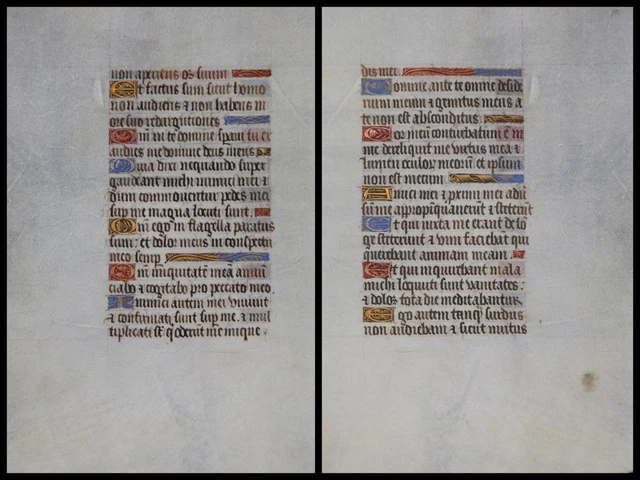 non aperiens os suum
Et factus sum sicut homo
non audiens ⁊ non habens in
ore suo redargutiones
Qm̄ in te domine speraui tu ex
audies me domine deus meus
Quia dixi nequando super
gaudeant michi inimici mei ⁊
dum commouentur pedes mei
sup me magna locuti sunt.
Qm̄ ego in flagella paratus
sum: et dolor meus in conspectu
meo semp̄
Qm̄ iniquitatē meā annū
ciabo ⁊ cogitabo pro peccato meo
Inimici autem mei viuunt
⁊ confirmati sunt sup me. ⁊ mul
tiplicati sūt q̄ oderūt me inique.
dis mei.
Domine ante te omne deside
rium meum ⁊ gemitus meus a
te non est absconditus
Cor meum conturbatum ē in
me dereliquit me virtus mea ⁊
lumen oculoꝝ meoꝝ et ipsum
non est mecum
Amici mei ⁊ proximi mei aduer
sū me appropinquauerūt ⁊ steterūt
Et qui iuxta me erant de lo
ge steterunt ⁊ vim faciebāt qui
querebant animam meam
Et qui inquirebant mala
michi locuti sunt vanitates:
⁊ dolos tota die meditabantur
Ego autem tanq̄ surdus
non audiebam ⁊ sicut mutus